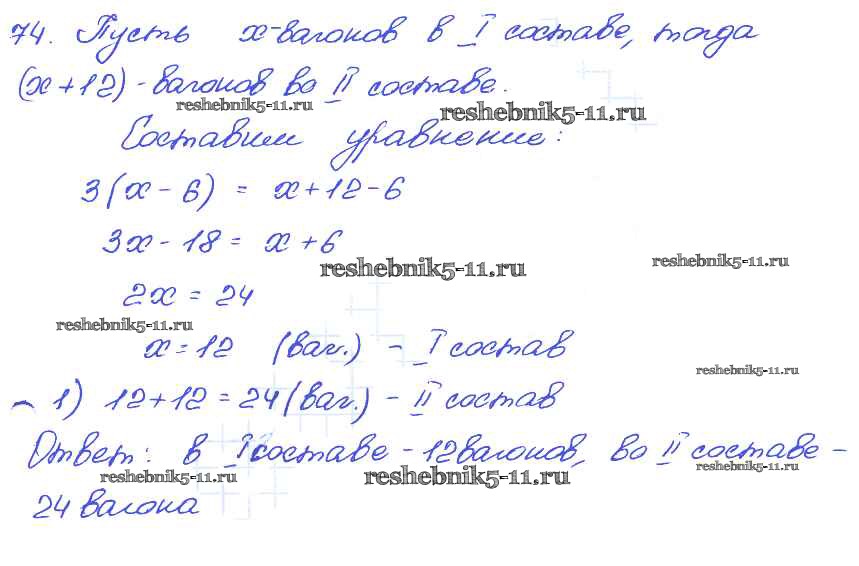 74. Пусть x-вагонов в I составе, тогда
(x+12)-вагонов во II составе.
reshebnik5-11.ru
reshebnik5-11.ru
Составим уравнение:
3(x-6) = x+12-6
3x-18 = x+6
reshebnik5-11.ru
reshebnik5-11.ru
2x = 24
reshebnik5-11.ru
x=12 (ваг.) - I состав
reshebnik5-11.ru
1) 12+12=24(ваг.)- II состав
Ответ: в I составе -12вагонов, во II составе-
reshebnik5-11.ru
reshebnik5-11.ru
reshebnik5-11.ru
24 вагона